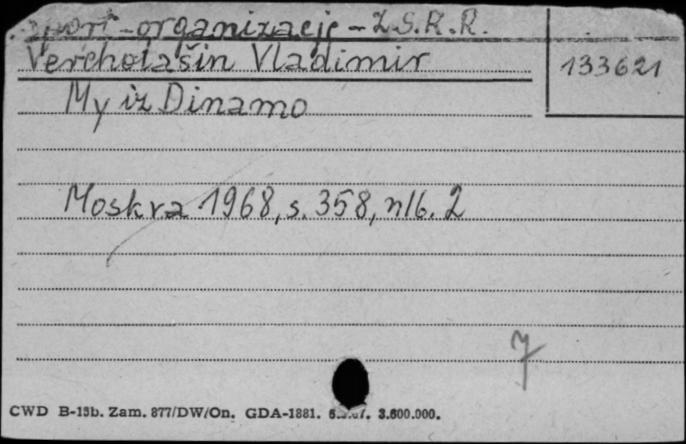 Sport - organizacje - Z.S.R.R.
Vercholašin Vladimir
133621
My iz Dinamo
Moskva 1968, s. 358, nlb. 2
7
CWD B-13b. Zam. 877/DW/On. GDA-1881. 3.600.000.